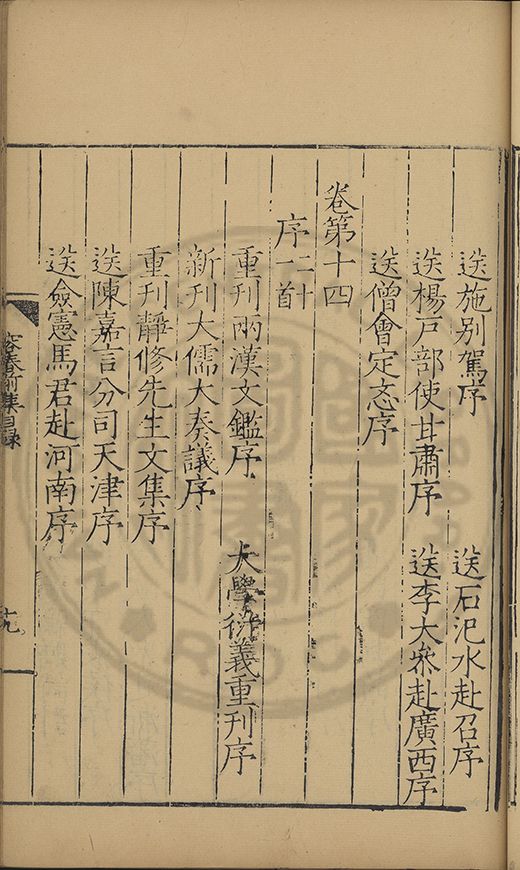 送施別駕序　送石汜水赴召序
送楊戶部使甘肅序　送李大參赴廣西序
送僧會定忞序
卷第十四
序二十一首
重刊兩漢文鑑序　大學衍義重刊序
新刊大儒大奏議序
重刊靜修先生文集序
送陳嘉言分司天津序
送僉憲馬君赴河南序
容春前集目錄　十九